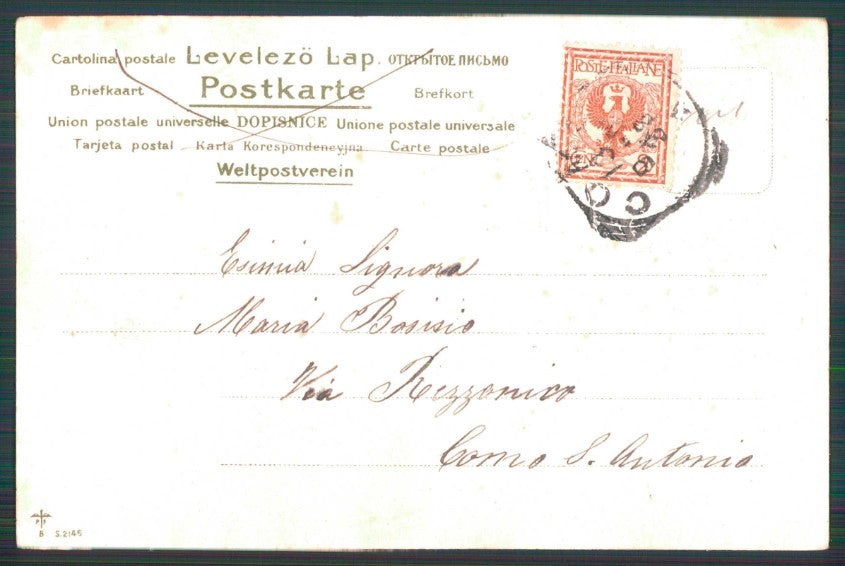 Cartolina postale Levelező Lap. ОТКРЫТОЕ ПИСЬМО
Briefkaart Postkarte Brefkort
Union postale universelle DOPISNICE Unione postale universale
Tarjeta postal Karta Korespondencyjna Carte postale
Weltpostverein
POSTE·ITALIANE
COMO
Esimia Signora
Maria Bosisio
Via Rezzonico
Como S. Antonio
P B
B S.2145